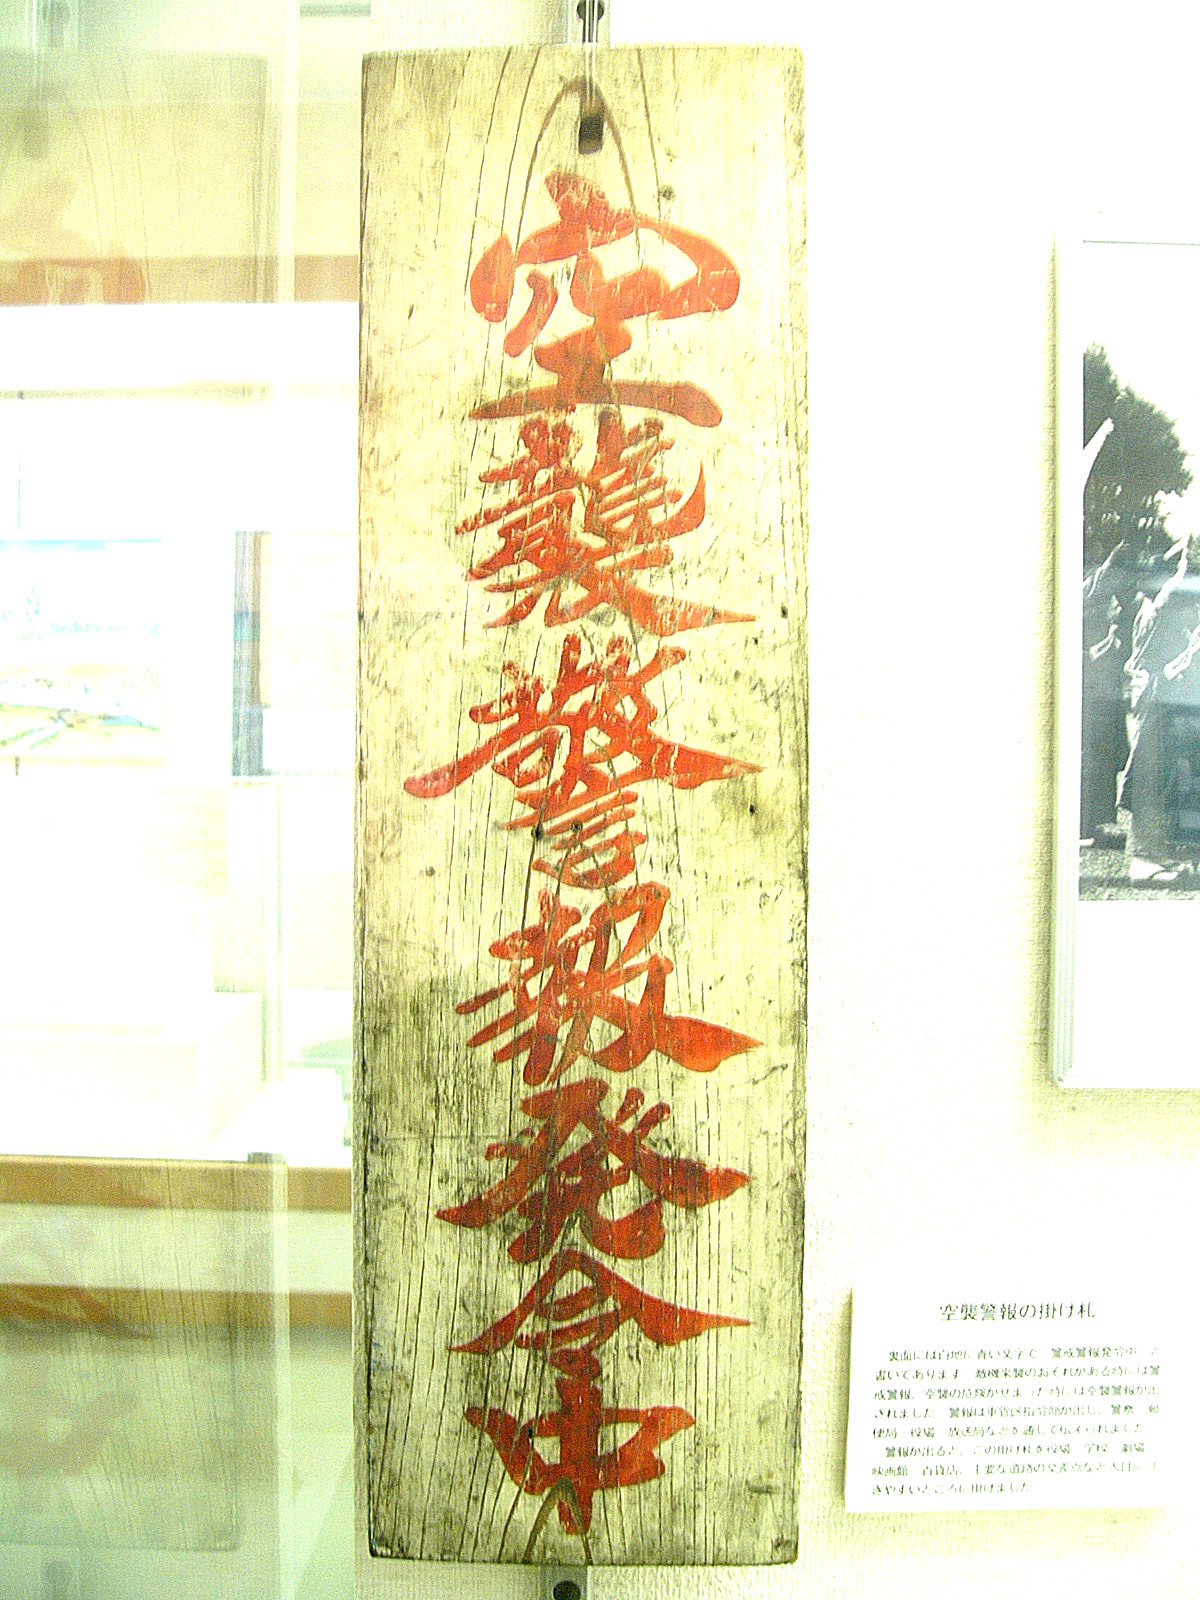 空襲警報発令中
空襲警報の掛け札
裏面には白地に青い文字で 警戒警報発令中 と
書いてあります 敵機来襲のおそれがある時には警
戒警報、空襲の危険がせまった時には空襲警報が出
されました 警報は軍管区司令部が出し、警察 郵
便局 役場 放送局などを通して伝えられました
警報が出ると、この掛け札を役場 学校 劇場
映画館 百貨店、主要な道路の交差点など人目につ
きやすいところに掛けました